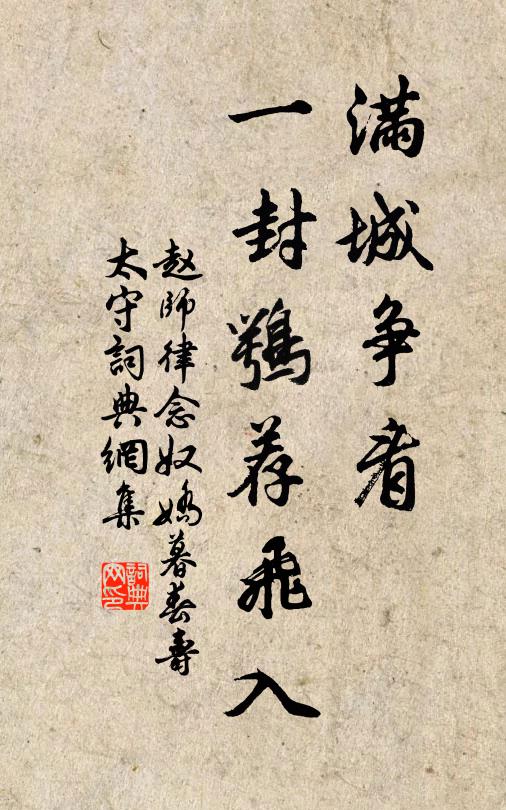 满城争看
一封鹗荐飞入
赵师律念奴娇暮春寿
太守词典網集
詞典網印